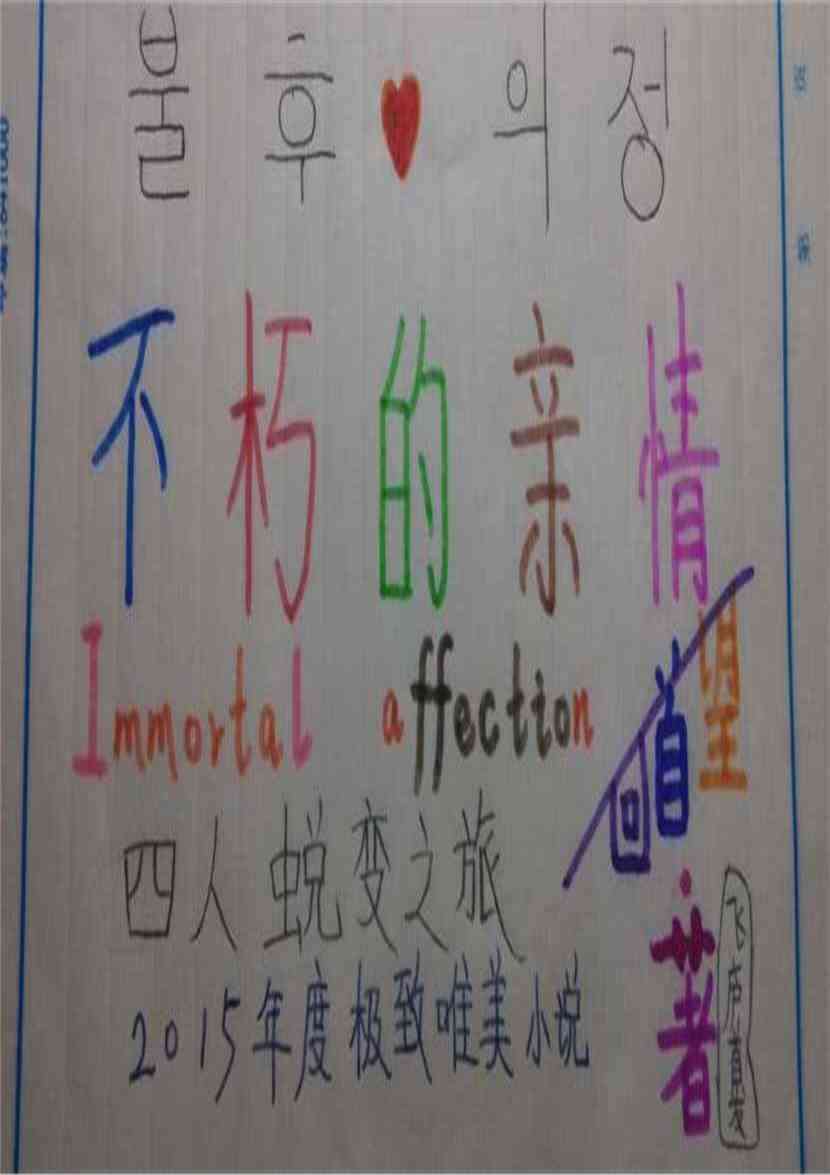 불후❤의정
不朽的亲情
Immortal affection
回首望
四人蜕变之旅
·著
2015年度极致唯美小说